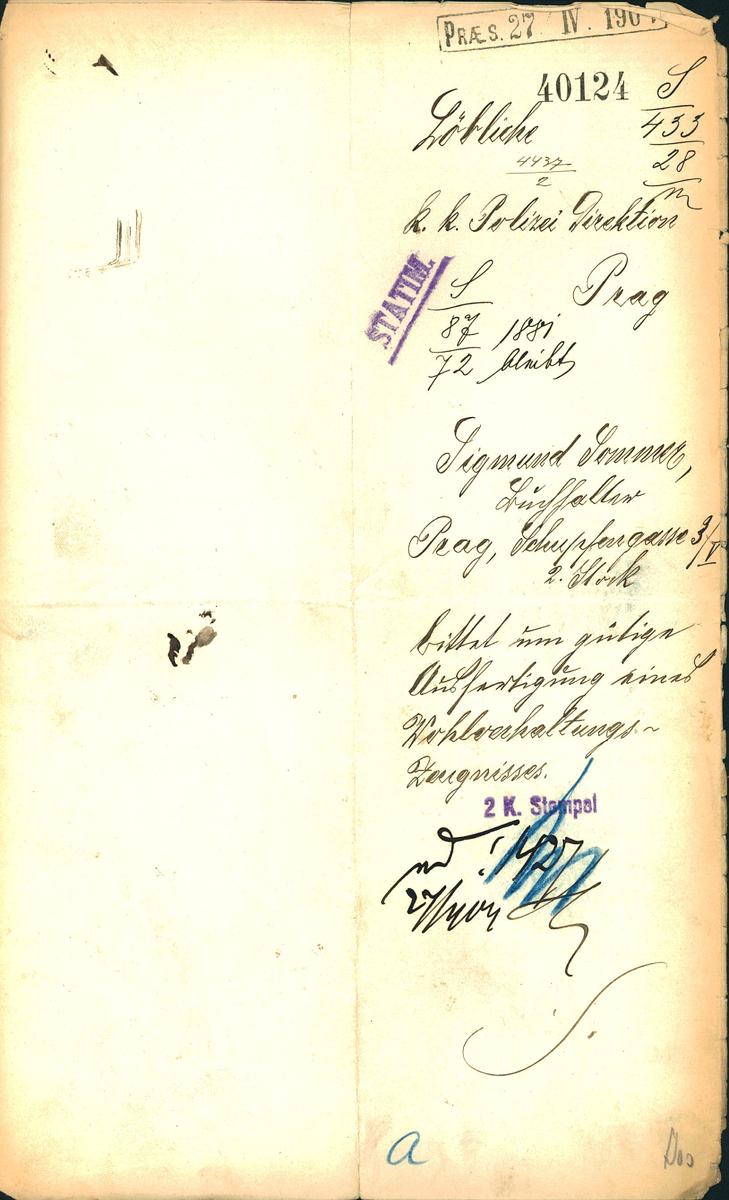 PRÆS. 27 IV. 190
40124
S
433
28
Löbliche
4437
2
k. k. Polizei Direktion
Prag
STATIM.
S
87 1881
72 bleibt
Sigmund Sommer,
Buchhalter
Prag, Schupfengasse 3/V
2. Stock
bittet um gütige
Ausfertigung eines
Wohlverhaltungs-
Zeugnisses.
2 K. Stempel
S.
a